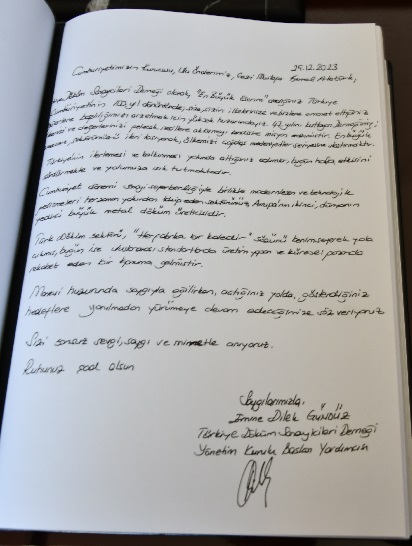 25.12.2023
Cumhuriyetimizin Kurucusu, Ulu Önderimiz, Gazi Mustafa Kemal Atatürk,
Döküm Sanayicileri Derneği olarak, "En Büyük Eserim" dediğiniz Türkiye
Cumhuriyetinin 100. yıl dönümünde; size, sizin ilkelerinize ve bizlere emanet ettiğiniz
bağlılığımızı arzetmek için yüksek huzurunuzdayız. 47. yılını kutlayan Derneğimiz;
ve değerlerimizi gelecek nesillere aktarmayı kendine misyon edinmiştir. En büyük
ileri taşıyarak, ülkemizi çağdaş medeniyetler seviyesine ulaştırmaktır.
Türkiye'nin ilerlemesi ve kalkınması yolunda attığınız adımlar, bugün hala etkisini
sürdürmekte ve yolumuza ışık tutmaktadır.
Cumhuriyet dönemi sanayi seferberliğiyle birlikte modernleşen ve teknolojik
gelişmeleri herzaman yakından takip eden sektörümüz Avrupa'nın ikinci, dünyanın
büyük metal döküm üreticisidir.
Türk döküm sektörü, "Her fabrika bir kaledir" sözünü benimseyerek yola
çıkmış, bugün ise uluslararası standartlarda üretim yapan ve küresel pazarda
rekabet eden bir konuma gelmiştir.
Manevi huzurunda saygıyla eğilirken, açtığınız yolda, gösterdiğiniz
hedeflere yanılmadan yürümeye devam edeceğimize söz veriyoruz
Sizi sonsuz sevgi, saygı ve minnetle anıyoruz.
Ruhunuz şad olsun
Saygılarımızla,
Emine Dilek GÜNDÜZ
Türkiye Döküm Sanayicileri Derneği
Yönetim Kurulu Başkan Yardımcısı